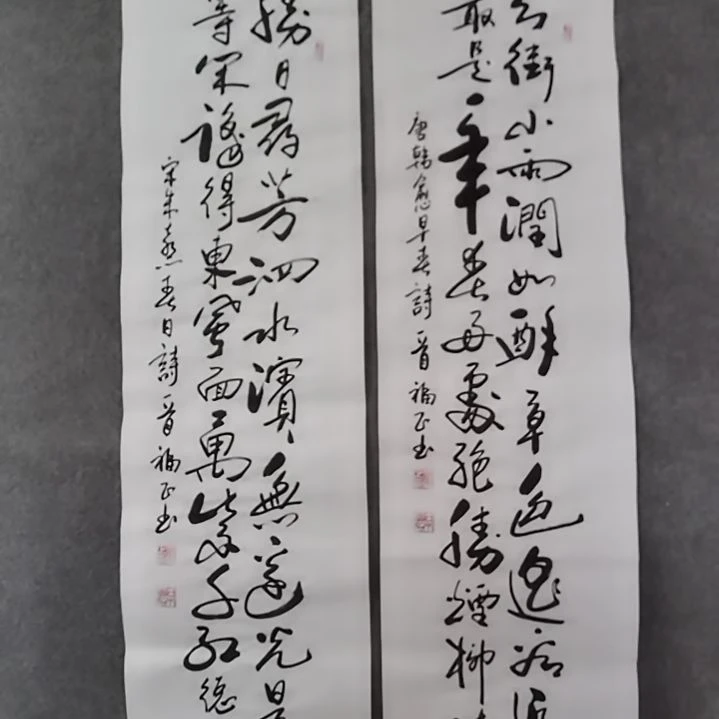 街小雨潤如酥草色遥看近
最是一年春好處絕勝煙柳
唐韓愈早春詩 晉福正书
勝日尋芳泗水濱無邊光景
等閑識得東風面萬紫千紅總
宋朱熹春日詩 晉福正书